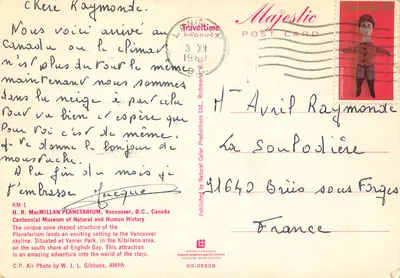 Chère Raymonde.
Nous voici arrivé au
Canada ou le climat
n'est plus du tout le même
maintenant nous sommes
dans la neige à part cela
tout va bien et espère que
pour toi c'est de même.
je te donne le bonjour de
moustache.
A la fin du mois je
t'embrasse Jacques
KM-1
H. R. MacMILLAN PLANETARIUM, Vancouver, B.C., Canada
Centennial Museum of Natural and Human History
The unique cone shaped structure of the
Planetarium lends an exciting setting to the Vancouver
skyline. Situated at Vanier Park, in the Kitsilano area,
on the south shore of English Bay. This attraction
is an amazing adventure into the world of the stars.
C.P. Air Photo by W. J. L. Gibbons, AMPA
Traveltime
PRODUCT
Published by Natural Color Productions Ltd., Richmond,
Majestic
POST CARD
3 XII
Mme Avril Raymonde
La Soulodière
91640 Briis sous Forges
France
KS-28228